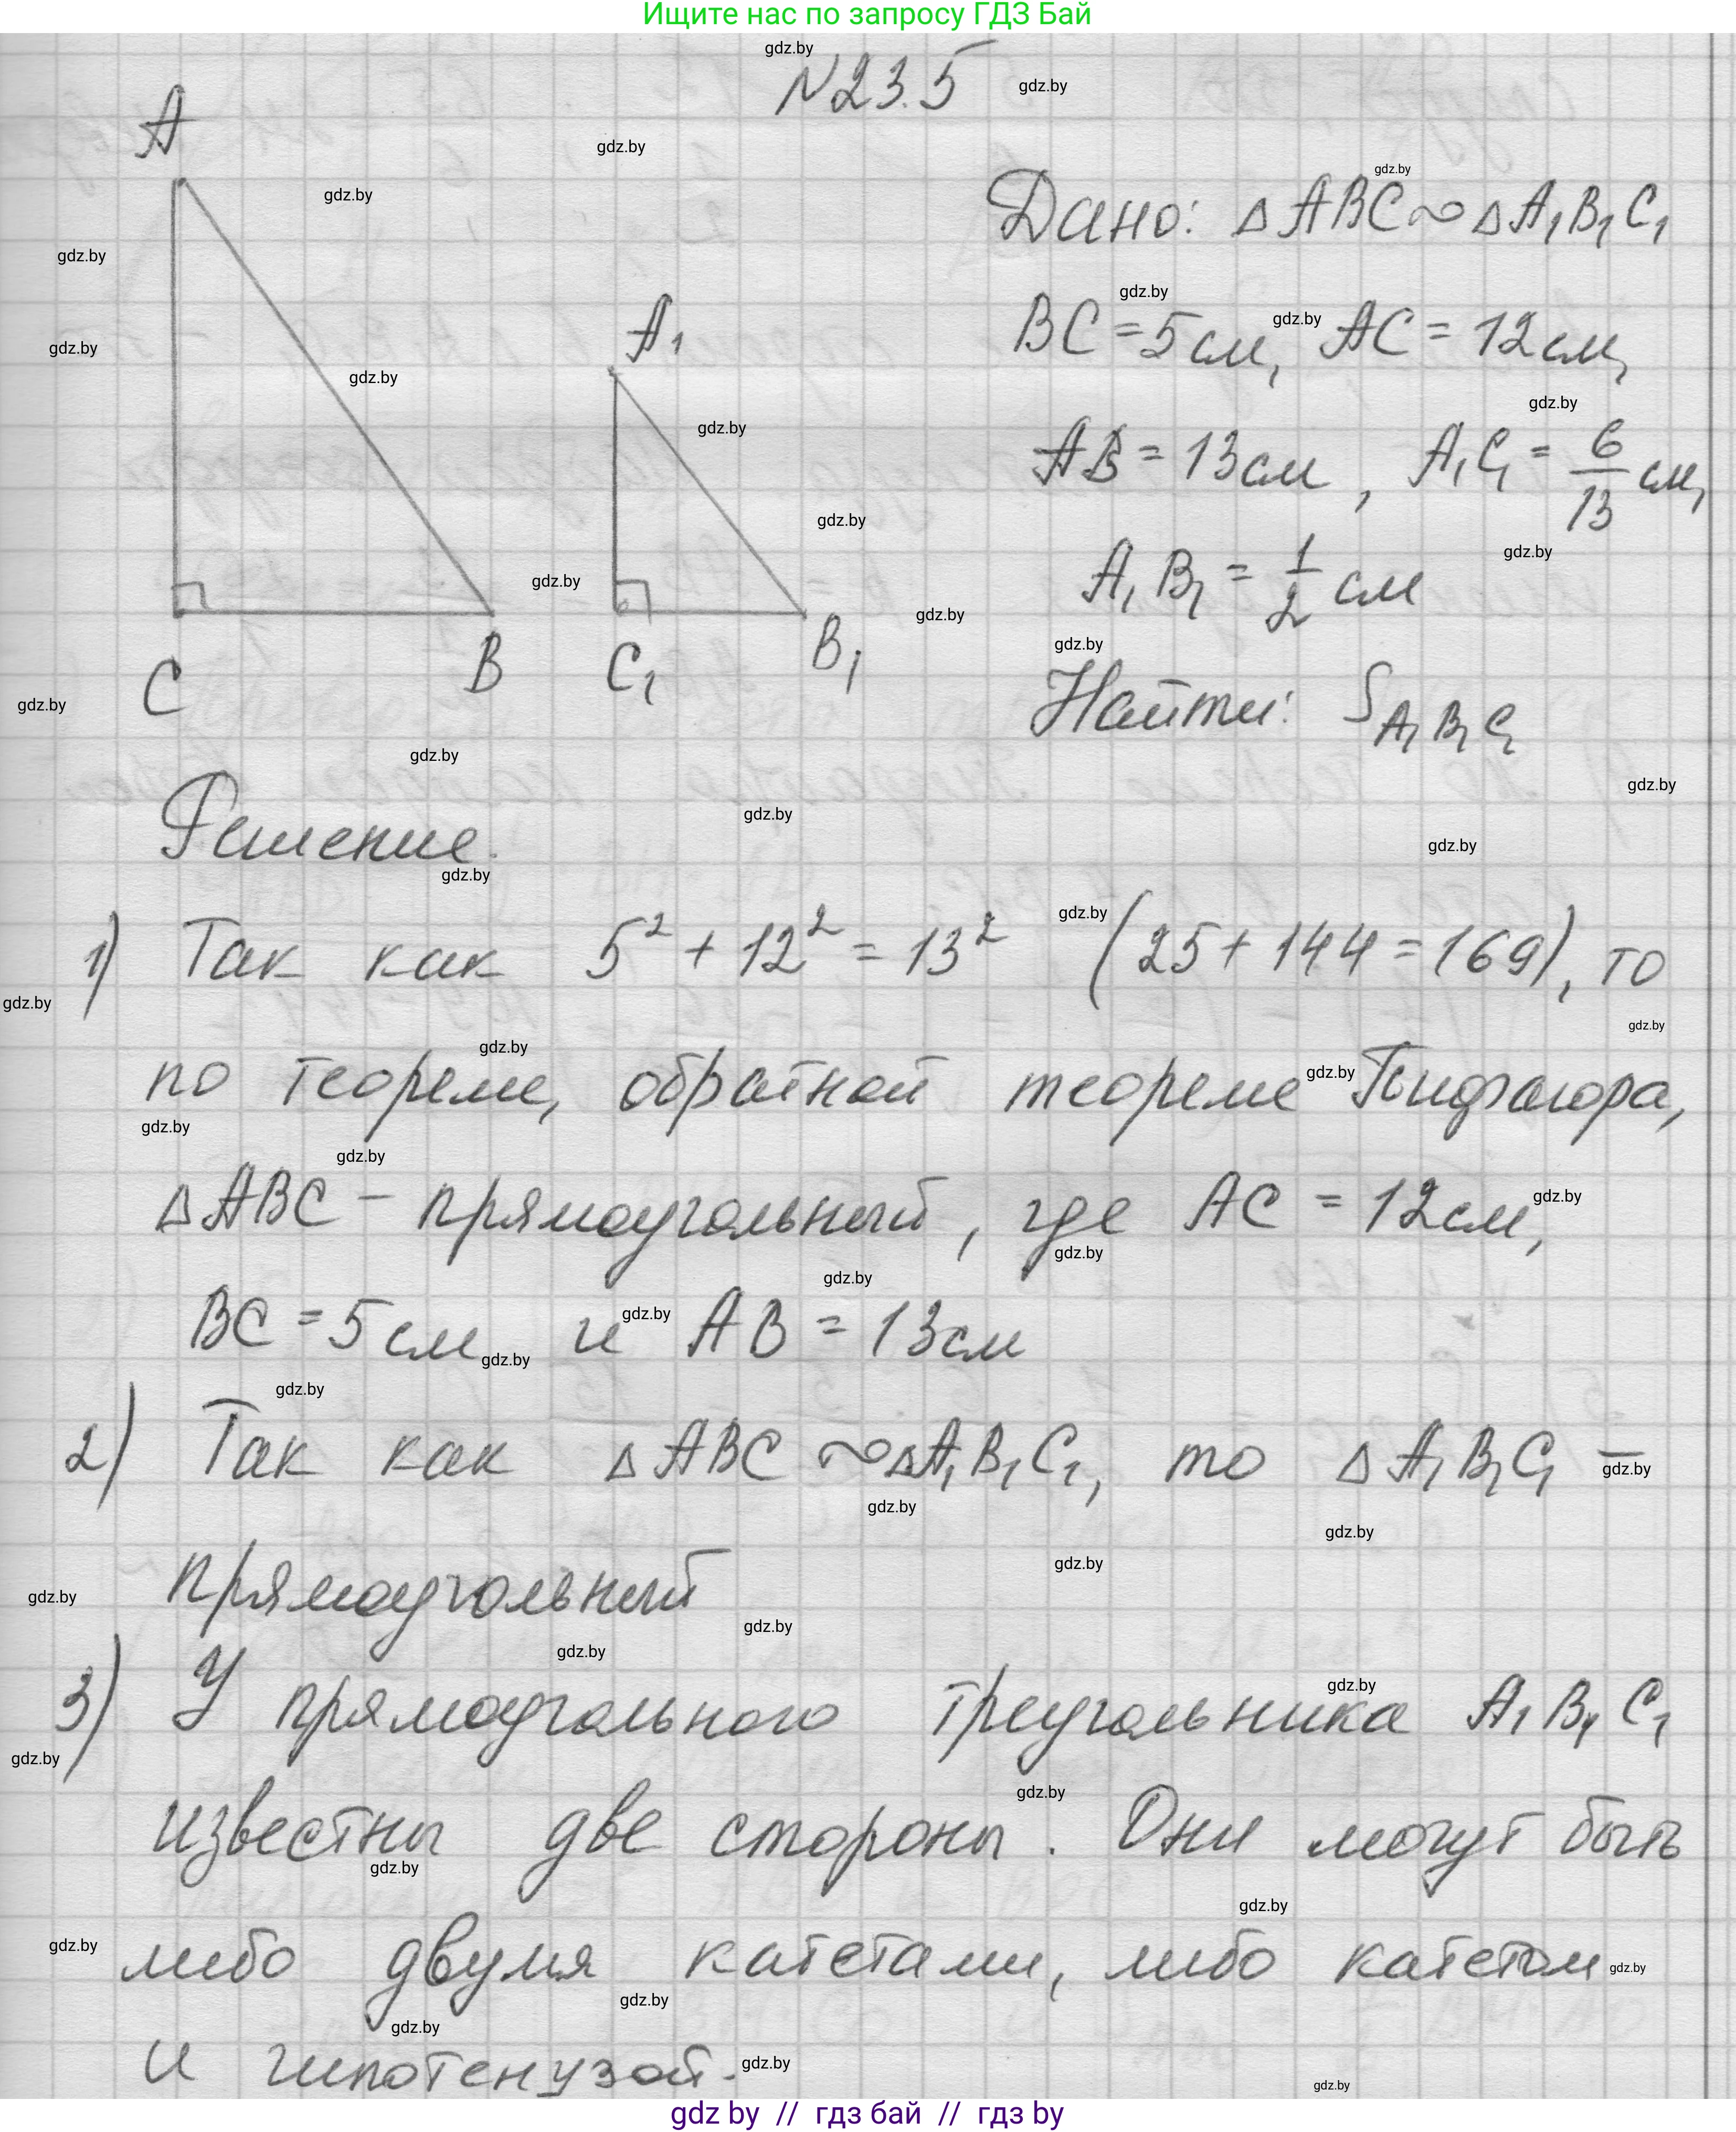 Ищите нас по запросу ГДЗ Бай
N23.5
A
Дано: △ABC∾△A₁B₁C₁
BC=5см, AC=12см,
A₁
AB=13см, A₁C₁=6/13 см,
A₁B₁=1/2 см
C B C₁ B₁
Найти: S A₁B₁C₁
Решение.
1) Так как 5²+12²=13² (25+144=169), то
по теореме, обратной теореме Пифагора,
△ABC – прямоугольный, где AC=12см,
BC=5см и AB=13см
2) Так как △ABC∾△A₁B₁C₁, то △A₁B₁C₁ –
прямоугольный
3) У прямоугольного треугольника A₁B₁C₁
известны две стороны. Они могут быть
либо двумя катетами, либо катетом
и гипотенузой.
gdz by // гдз бай // гдз by